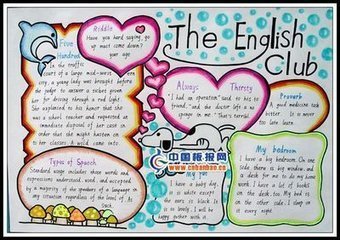 The English
Club
Riddle
Have you hard saying, go
up must come down?
your age
Five
Hundred
In the traffic
court of a large mid-western
city, a young lady was brought before
the judge to answer a ticket given
her for driving through a red light.
She explained to his honor that she
was a school teacher and requested an
immediate disposal of her case in
order that she might hasten on
to her classes. A wild came into
Types of Speech
Standard usage includes those words and
expressions understood, used, and accepted
by a majority of the speakers of a language
in any situation regardless of the level of
Always Thirsty
"I had an operation," said to his
friend, "and the doctor left a
sponge in me." "That's terrible!"
Proverb
A good medicine tastes
bitter. It is never
too late learn.
中国板报网
www.cnbanbao.cn
My pet
I have a baby dog,
it is white except
the ears is black. Is
is so lovely. I
happy gather with it
My bedroom
I have a big bedroom. On one
side there is big window and
a desk for me to do my home
work. I have a lot of books
on the desk too. My bed is
on the other side. I sleep in
every night.